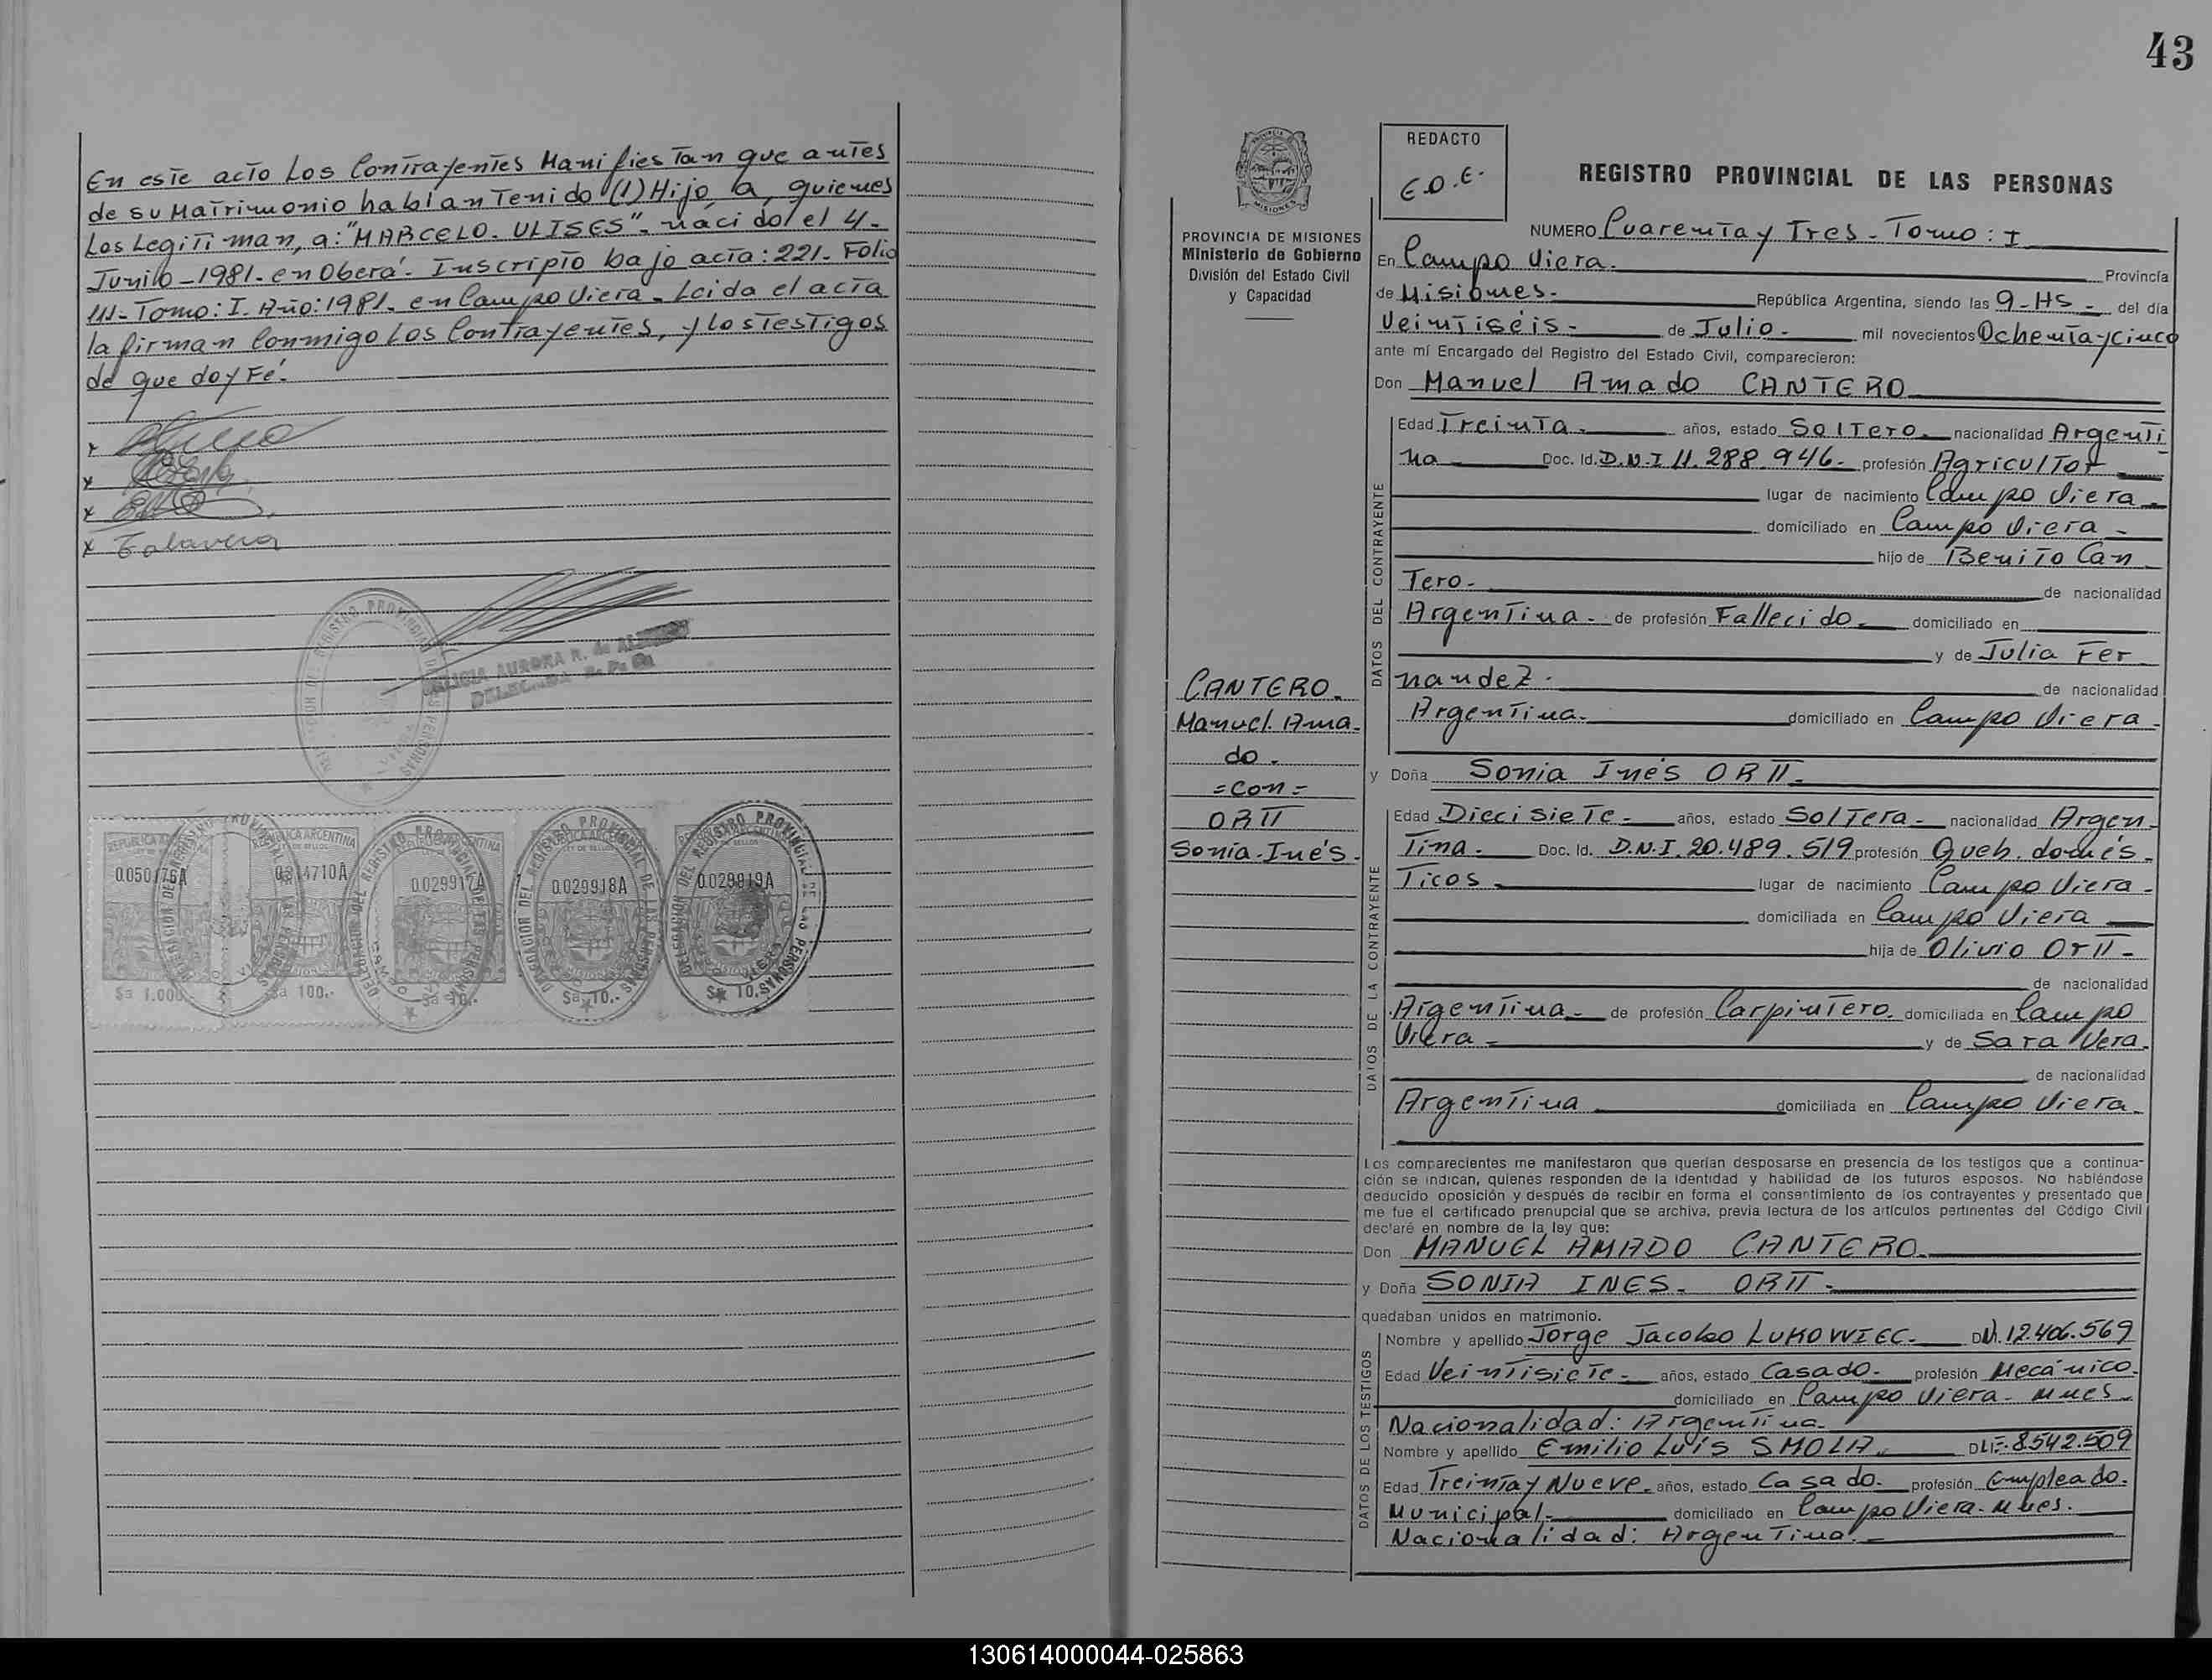 En este acto Los Contrayentes Manifiestan que antes
de su Matrimonio habian Tenido (1) Hijo, a, quienes
Los Legitiman, a: "MARCELO. ULISES". nacido el 4-
Junio-1981. en Oberá. Inscripto bajo acta: 221. Folio
111- Tomo: I. Año: 1981. en Campo Viera. Leida el acta
la firman Conmigo Los Contrayentes, y los Testigos
de que doy Fé.
x
x
x
x Talavera
DELEGADA
REPUBLICA ARGENTINA
0.050176A
0.029918A
0.029919A
$a 1.000
$a 100.-
$a 10.-
$a 10.-
$a 10.
43
REDACTO
E.D.E.
REGISTRO PROVINCIAL DE LAS PERSONAS
PROVINCIA DE MISIONES
Ministerio de Gobierno
División del Estado Civil
y Capacidad
CANTERO.
Manuel. Ama-
do.
=con=
ORTT
Sonia. Inés.
NUMERO Cuarenta y Tres- Tomo: I
En Campo Viera. Provincia
de Misiones- República Argentina, siendo las 9-HS- del día
Veintiséis- de Julio- mil novecientos Ochenta y cinco
ante mí Encargado del Registro del Estado Civil, comparecieron:
Don Manuel Amado CANTERO
DATOS DEL CONTRAYENTE
Edad Treinta- años, estado Soltero. nacionalidad Argenti
na Doc. Id. D.N.I 11.288.946- profesión Agricultor
lugar de nacimiento Campo Viera-
domiciliado en Campo Viera-
hijo de Benito Can
Tero- de nacionalidad
Argentina- de profesión Fallecido- domiciliado en
y de Julia Fer
nandez. de nacionalidad
Argentina. domiciliado en Campo Viera-
y Doña Sonia Inés ORTT-
DATOS DE LA CONTRAYENTE
Edad Diecisiete- años, estado Soltera- nacionalidad Argen-
Tina- Doc. Id. D.N.I. 20.489.519 profesión Queh. domés-
Ticos- lugar de nacimiento Campo Viera-
domiciliada en Campo Viera
hija de Olivio OrTT-
de nacionalidad
Argentina- de profesión Carpintero. domiciliada en Campo
Viera- y de Sara Vera-
de nacionalidad
Argentina domiciliada en Campo Viera.
Los comparecientes me manifestaron que querían desposarse en presencia de los testigos que a continua-
ción se indican, quienes responden de la identidad y habilidad de los futuros esposos. No habiéndose
deducido oposición y después de recibir en forma el consentimiento de los contrayentes y presentado que
me fue el certificado prenupcial que se archiva, previa lectura de los artículos pertinentes del Código Civil
declaré en nombre de la ley que:
Don MANUEL AMADO CANTERO.
y Doña SONIA INES- ORTT-
quedaban unidos en matrimonio.
DATOS DE LOS TESTIGOS
Nombre y apellido Jorge Jacobo LUKOWIEC- DNI. 12.406.569
Edad Veintisiete- años, estado Casado- profesión Mecánico-
domiciliado en Campo Viera- Mnes-
Nacionalidad: Argentina-
Nombre y apellido Emilio Luis SMOLA. D LE. 8.542.509
Edad Treinta y Nueve. años, estado Casado- profesión Empleado-
Municipal- domiciliado en Campo Viera. Mnes.
Nacionalidad: Argentina.-
130614000044-025863